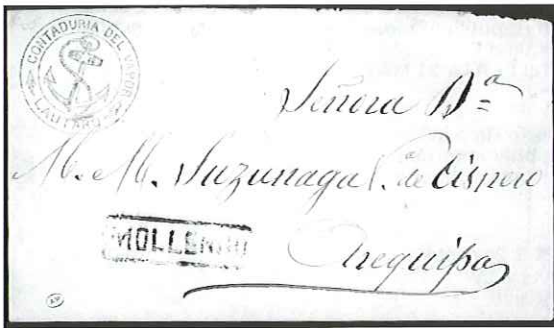 CONTADURIA DEL VAPOR
LAUTARO
Señora Dª
M. M. Suzunaga de Cisnero
MOLLENDO
Arequipa